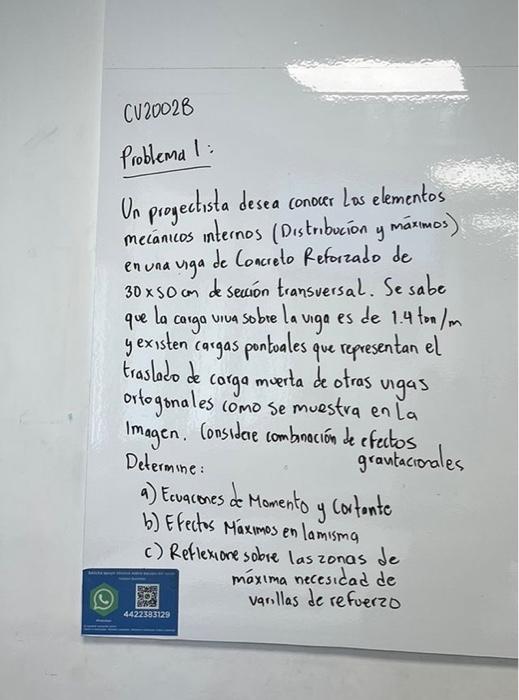 CV2002B
Problema 1:
Un proyectista desea conocer los elementos
mecánicos internos (Distribución y máximos)
en una viga de Concreto Reforzado de
30 x 50 cm de sección transversal. Se sabe
que la carga viva sobre la viga es de 1.4 ton/m
y existen cargas pontuales que representan el
traslado de carga muerta de otras vigas
ortogonales como se muestra en la
Imagen. Considere combinación de efectos
gravitacionales
Determine:
a) Ecuaciones de Momento y Cortante
b) Efectos Máximos en la misma
c) Reflexione sobre las zonas de
máxima necesidad de
varillas de refuerzo
4422383129